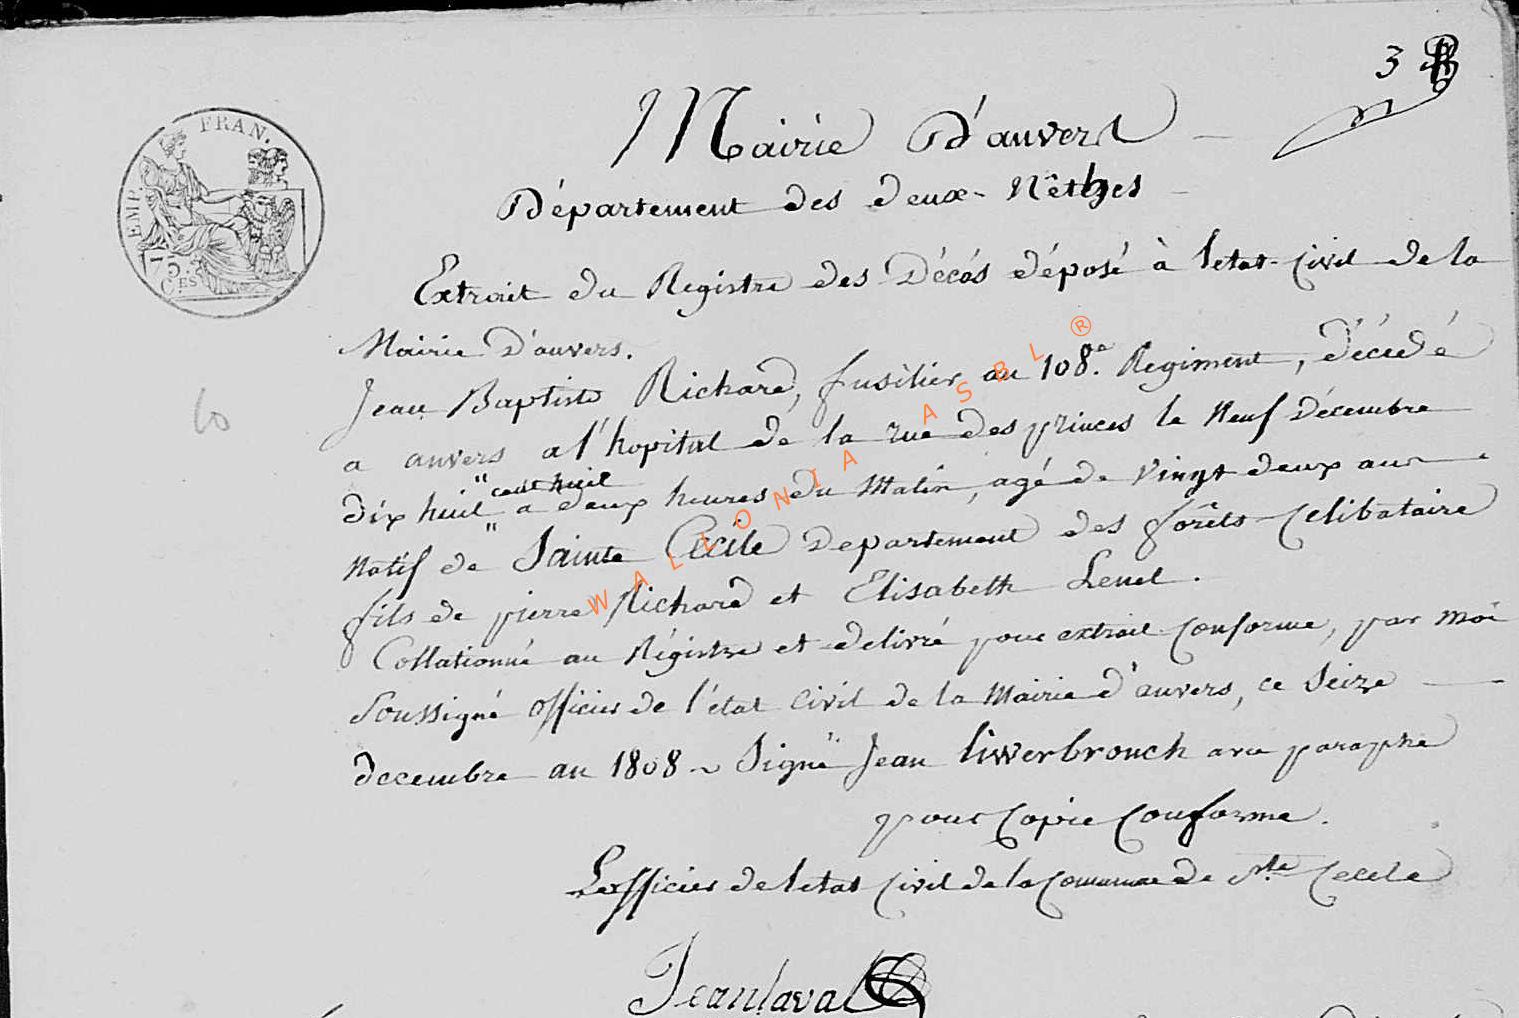 3
EMP. FRAN.
75.
CES
Mairie D'anvers
Département des deux-Nèthes
Extrait du Registre des Décés déposé à letat-Civil de la
Mairie D'anvers.
Jean Baptiste Richard, fusilier au 108.e Regiment, décédé
a anvers a l'hopital de la rue des princes le Neuf Décembre
dix huit " cent huit " a deux heures du Matin, agé de Vingt deux ans
Natif de Sainte Cécile Departement des forêts Celibataire
fils de pierre Richard et Elisabeth Lenel.
Collationné au Régistre et delivré pour extrait Conforme, par moi
Soussigné officier de l'état Civil de la Mairie d'anvers, ce Seize
decembre an 1808 ~ Signé Jean liwerbrouch avec paraphe
pour Copie Conforme.
Lofficier de letat Civil de la Commune de Ste Cecile
Jean laval
10
WALLONIA ASBL ®